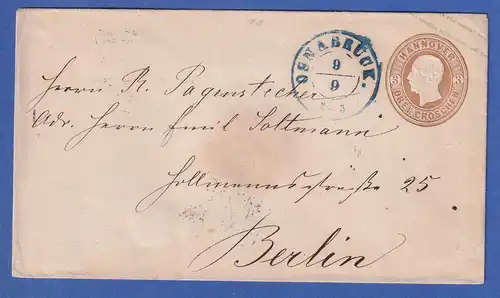 OSNABRÜCK.
9
9
2 - 3
HANNOVER
3 3
DREI GROSCHEN
Herrn R. Pagenstecher
Adr. Herrn Emil Soltmann
Hollmannsstraße 25
Berlin